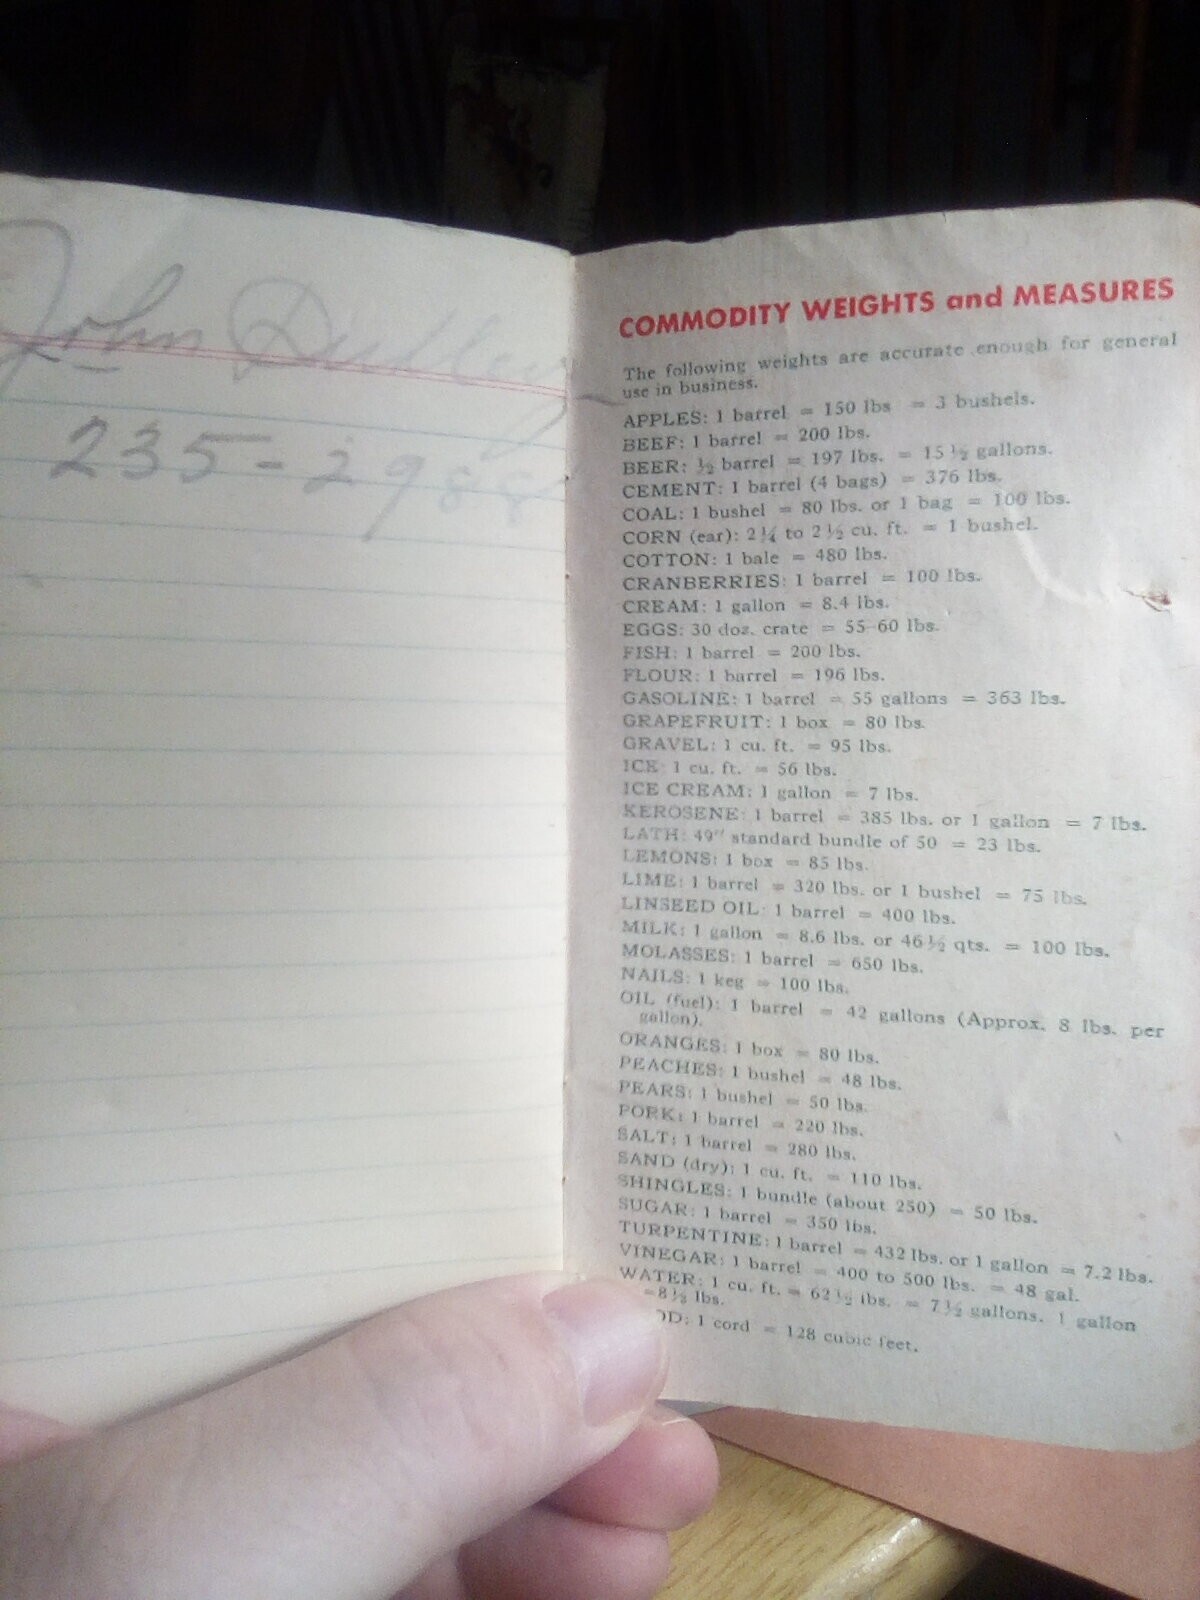 John Dudley
235-298
COMMODITY WEIGHTS and MEASURES
The following weights are accurate enough for general
use in business.
APPLES: 1 barrel = 150 lbs = 3 bushels.
BEEF: 1 barrel = 200 lbs.
BEER: ½ barrel = 197 lbs. = 15½ gallons.
CEMENT: 1 barrel (4 bags) = 376 lbs.
COAL: 1 bushel = 80 lbs. or 1 bag = 100 lbs.
CORN (ear): 2¼ to 2½ cu. ft. = 1 bushel.
COTTON: 1 bale = 480 lbs.
CRANBERRIES: 1 barrel = 100 lbs.
CREAM: 1 gallon = 8.4 lbs.
EGGS: 30 doz. crate = 55-60 lbs.
FISH: 1 barrel = 200 lbs.
FLOUR: 1 barrel = 196 lbs.
GASOLINE: 1 barrel = 55 gallons = 363 lbs.
GRAPEFRUIT: 1 box = 80 lbs.
GRAVEL: 1 cu. ft. = 95 lbs.
ICE: 1 cu. ft. = 56 lbs.
ICE CREAM: 1 gallon = 7 lbs.
KEROSENE: 1 barrel = 385 lbs. or 1 gallon = 7 lbs.
LATH: 49" standard bundle of 50 = 23 lbs.
LEMONS: 1 box = 85 lbs.
LIME: 1 barrel = 320 lbs. or 1 bushel = 75 lbs.
LINSEED OIL: 1 barrel = 400 lbs.
MILK: 1 gallon = 8.6 lbs. or 46½ qts. = 100 lbs.
MOLASSES: 1 barrel = 650 lbs.
NAILS: 1 keg = 100 lbs.
OIL (fuel): 1 barrel = 42 gallons (Approx. 8 lbs. per
gallon).
ORANGES: 1 box = 80 lbs.
PEACHES: 1 bushel = 48 lbs.
PEARS: 1 bushel = 50 lbs.
PORK: 1 barrel = 220 lbs.
SALT: 1 barrel = 280 lbs.
SAND (dry): 1 cu. ft. = 110 lbs.
SHINGLES: 1 bundle (about 250) = 50 lbs.
SUGAR: 1 barrel = 350 lbs.
TURPENTINE: 1 barrel = 432 lbs. or 1 gallon = 7.2 lbs.
VINEGAR: 1 barrel = 400 to 500 lbs. = 48 gal.
WATER: 1 cu. ft. = 62½ lbs. = 7½ gallons. 1 gallon
=8⅓ lbs.
OD: 1 cord = 128 cubic feet.